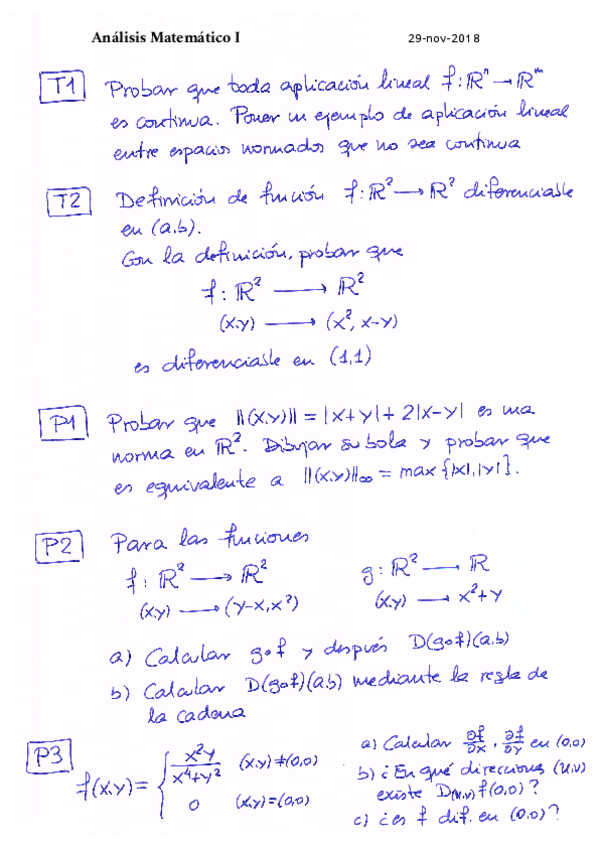 Análisis Matemático I 29-nov-2018
T1 Probar que toda aplicación lineal f: ℝⁿ → ℝᵐ
es continua. Poner un ejemplo de aplicación lineal
entre espacios normados que no sea continua
T2 Definición de función f: ℝ² → ℝ² diferenciable
en (a,b).
Con la definición, probar que
f: ℝ² → ℝ²
(x,y) → (x², x-y)
es diferenciable en (1,1)
P1 Probar que ||(x,y)|| = |x+y| + 2|x-y| es una
norma en ℝ². Dibujar su bola y probar que
es equivalente a ||(x,y)||∞ = max{|x|,|y|}.
P2 Para las funciones
f: ℝ² → ℝ² g: ℝ² → ℝ
(x,y) → (y-x, x²) (x,y) → x²+y
a) Calcular g∘f y después D(g∘f)(a,b)
b) Calcular D(g∘f)(a,b) mediante la regla de
la cadena
P3 f(x,y) = { x²y / x⁴+y² (x,y)≠(0,0)
0 (x,y)=(0,0)
a) Calcular ∂f/∂x, ∂f/∂y en (0,0)
b) ¿En qué direcciones (u,v)
existe D(u,v) f(0,0)?
c) ¿es f dif. en (0,0)?